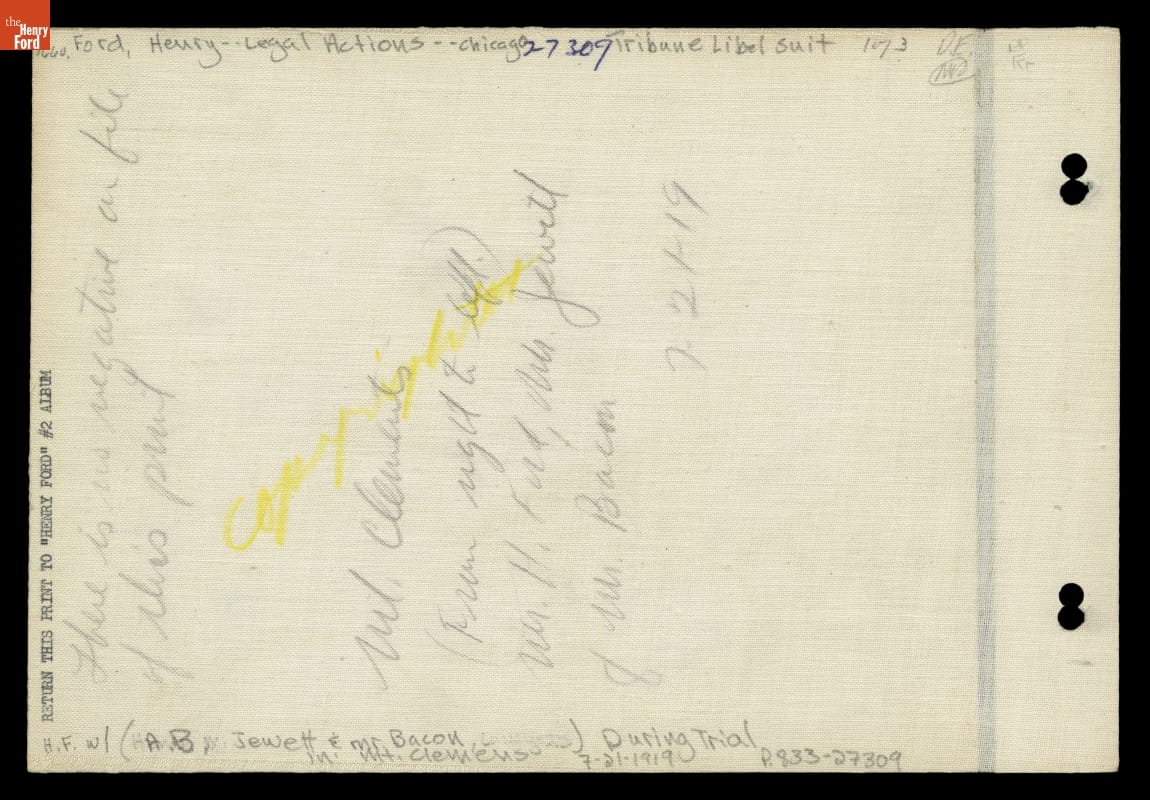 the
Henry
Ford
1660. Ford, Henry--Legal Actions--Chicago 27309 Tribune Libel suit 1 of 3 D.F.
RETURN THIS PRINT TO "HENRY FORD" #2 ALBUM
There is no negative on file
of this print
copy
Mt. Clemens
(From right to left)
Mr. H. Ford, Mr. Jewett
& Mr. Bacon
7-21-19
H.F. w/ (A B Jewett & Mr. Bacon ) During Trial
in Mt. Clemens 7-21-1919 P.833-27309